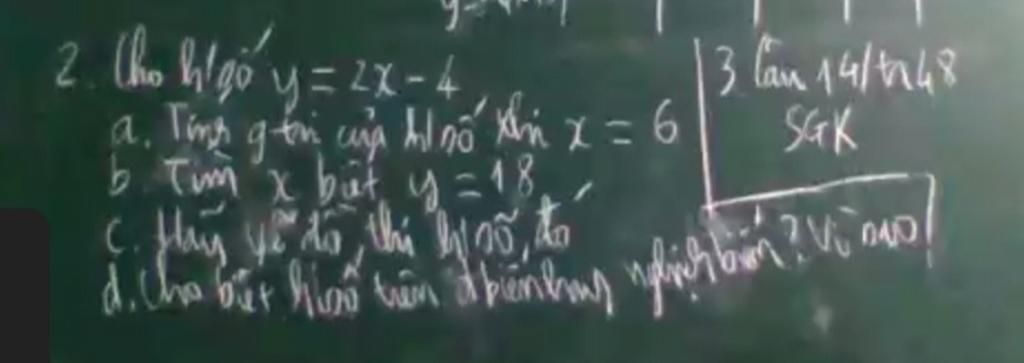 2. Cho h/số y = 2x - 4
a. Tính g trị của h/số khi x = 6
b. Tìm x biết y = 18
c. Hãy vẽ đồ thị h/số đó
d. Cho biết h/số trên đbiến hay nghịch biến? Vì sao
3 Làm 14/tr48
SGK